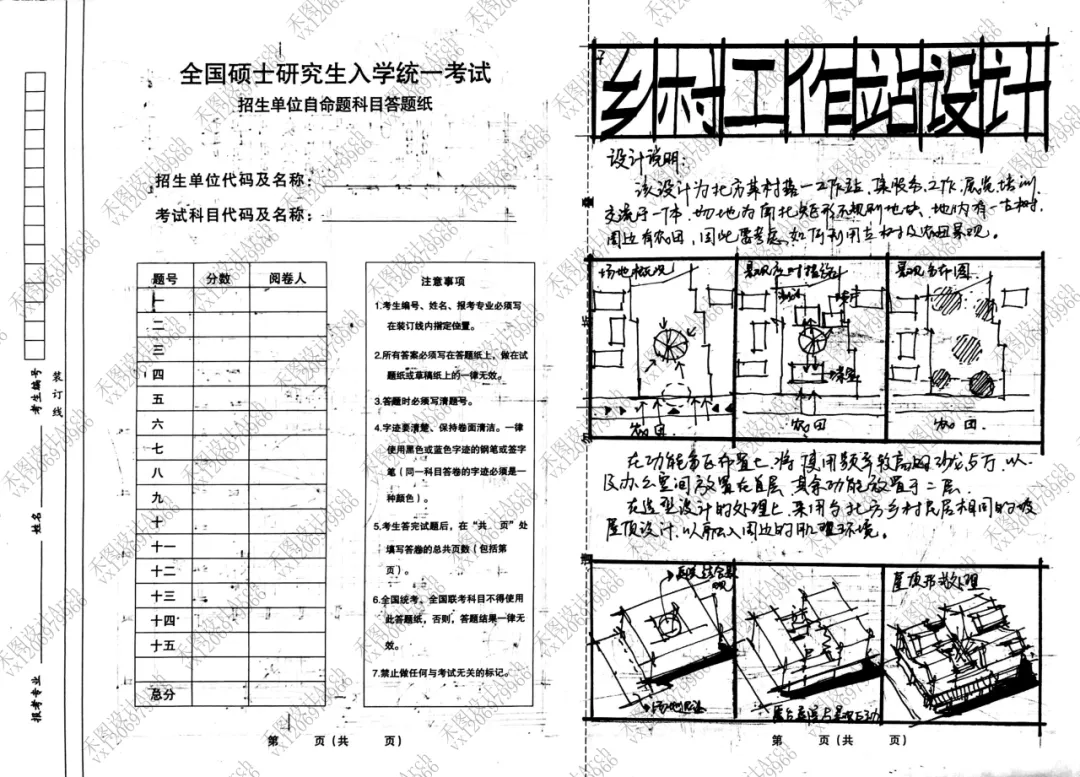 全国硕士研究生入学统一考试
招生单位自命题科目答题纸
招生单位代码及名称：
考试科目代码及名称：
题号 分数 阅卷人
一
二
三
四
五
六
七
八
九
十
十一
十二
十三
十四
十五
总分
注意事项
1.考生编号、姓名、报考专业必须写
在装订线内指定位置。
2.所有答案必须写在答题纸上，做在试
题纸或草稿纸上的一律无效。
3.答题时必须写清题号。
4.字迹要清楚、保持卷面清洁。一律
使用黑色或蓝色字迹的钢笔或签字
笔（同一科目答卷的字迹必须是一
种颜色）。
5.考生答完试题后，在“共　页”处
填写答卷的总共页数（包括第
页）。
6.全国统考、全国联考科目不得使用
此答题纸，否则，答题结果一律无
效。
7.禁止做任何与考试无关的标记。
第　页（共　页）
考生编号
姓名
报考专业
装订线
乡村工作站设计
设计说明：
该设计为北方某村落一工作站，集服务、工作、展览、培训、
交流于一体，场地为南北矩形不规则地块，地内有一古树，
周边有农田，因此要考虑如何利用古树及农田景观。
场地概况
农田
农田
景观布图
农田
在功能布置上，将使用频率较高的
办公空间放置在首层，其余功能放置于二层。
在造型设计的处理上，采用与北方乡村民居相同的坡
屋顶设计，以融入周边的肌理环境。
屋顶形式处理
第　页（共　页）
禾图设计Arch
vx12069799966